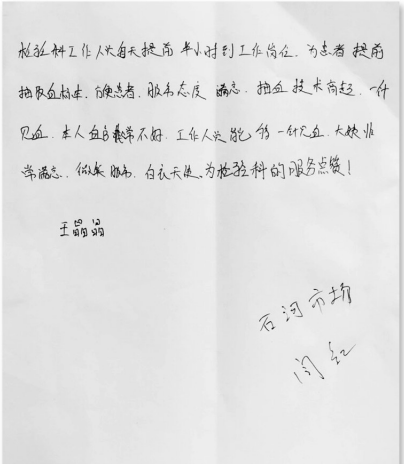 检验科工作人员每天提前半小时到工作岗位,为患者提前
抽取血标本,方便患者,服务态度满意,抽血技术高超,一针
见血,本人血管异常不好,工作人员能够一针见血,大娘非
常满意,微笑服务,白衣天使,为检验科的服务点赞!
王晶晶
石河市场
闫红